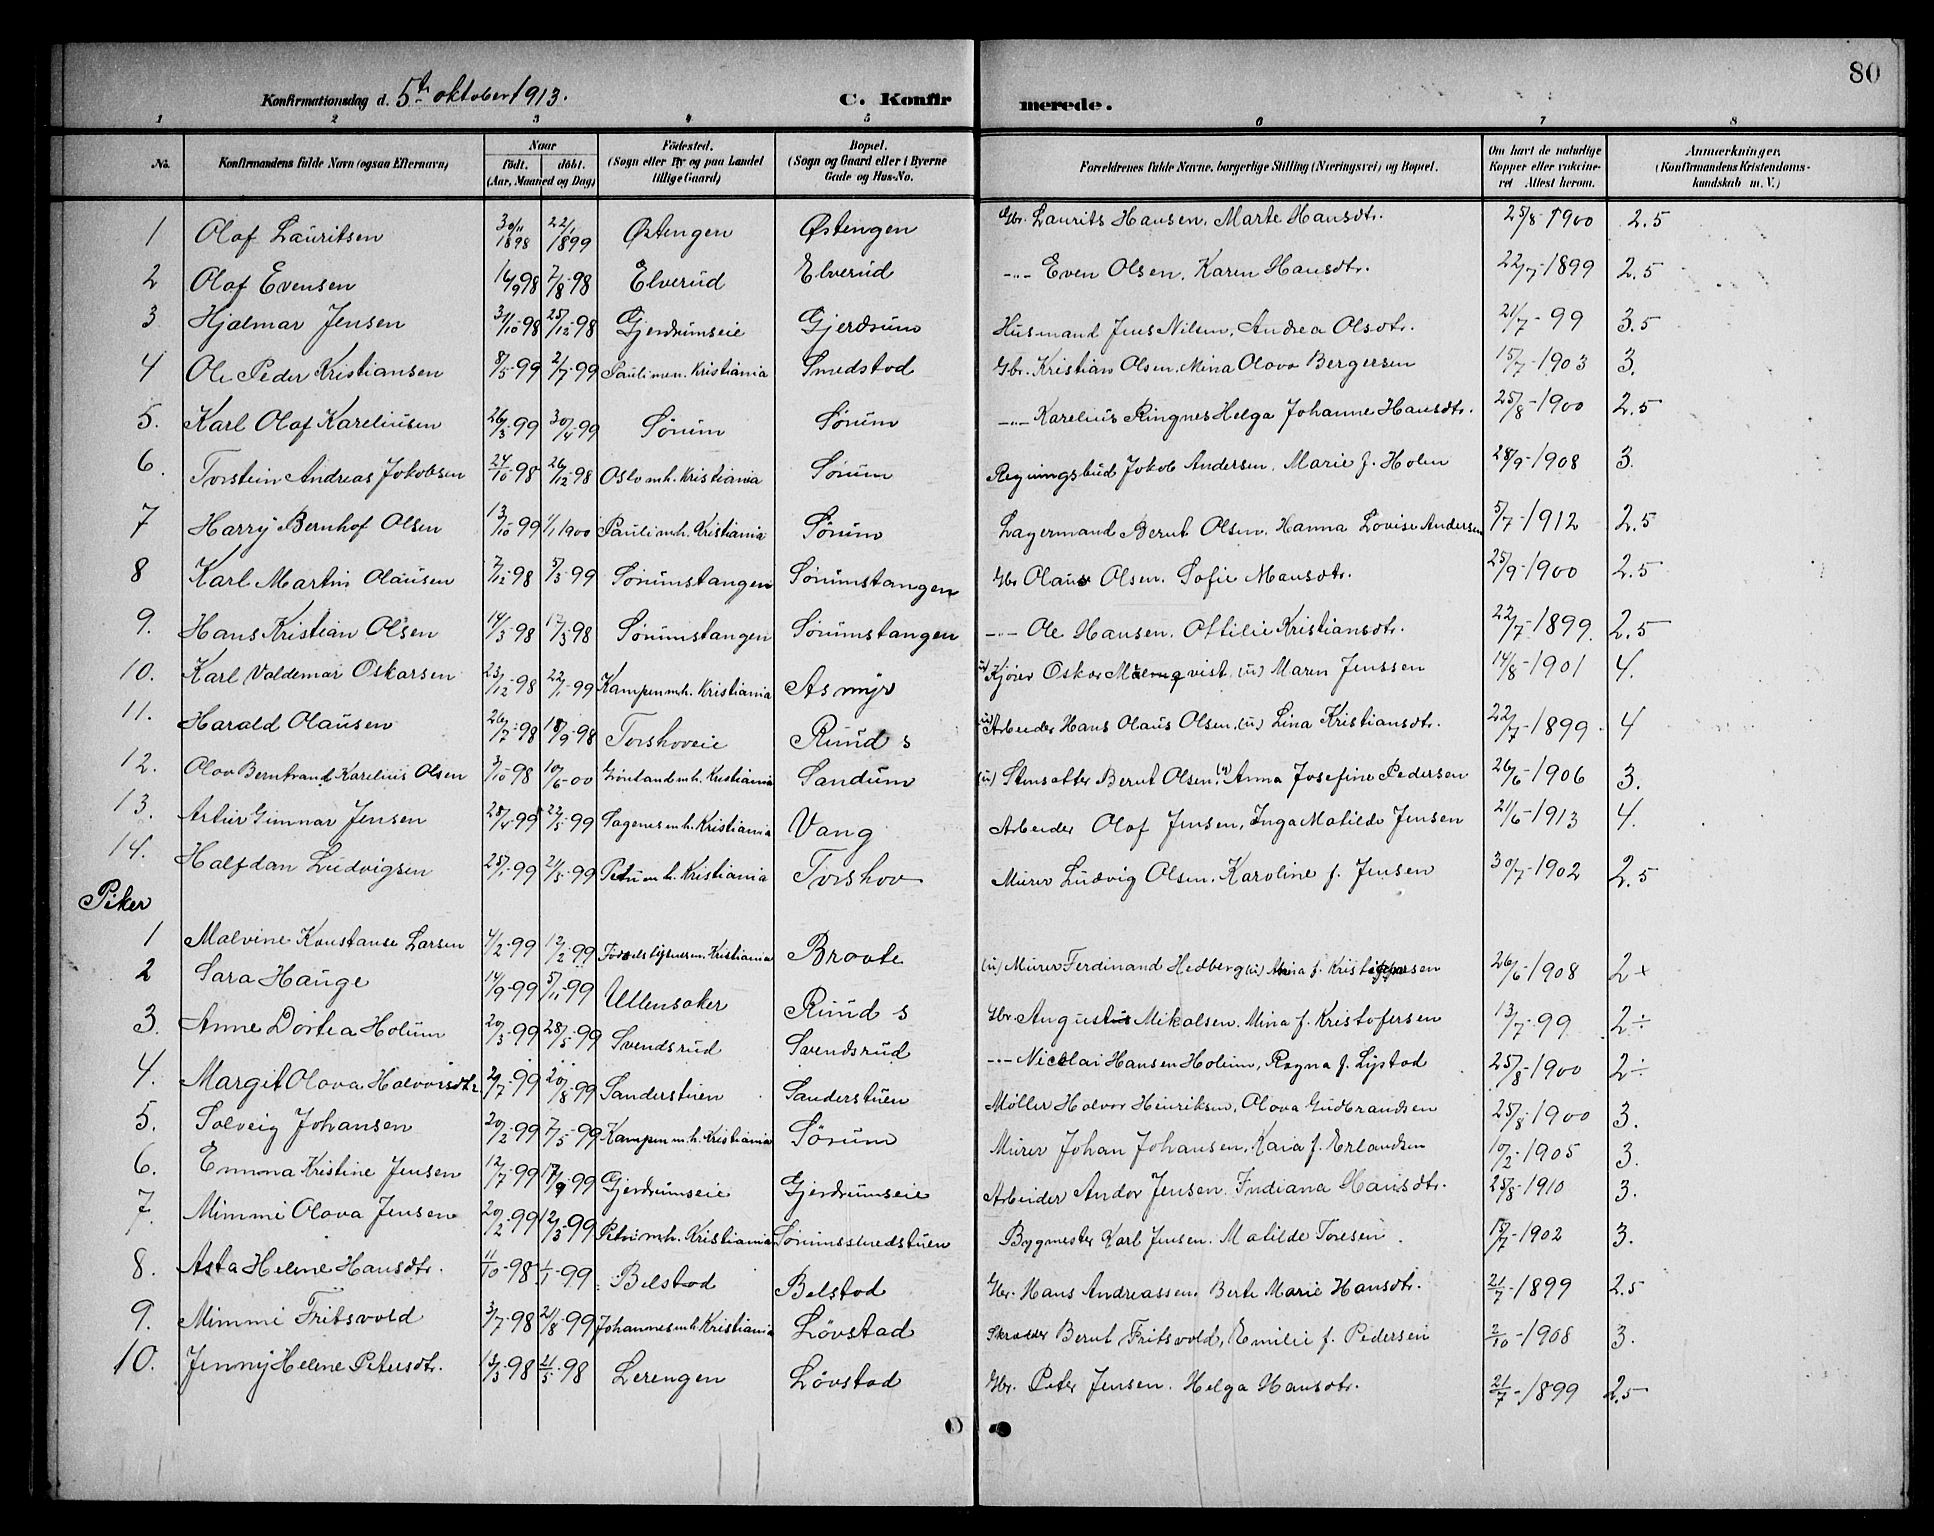 80
Konfirmationsdag d. 5te oktober 1913. C. Konfirmerede.
1 2 3 4 5 6 7 8
No. Konfirmandens fulde Navn (ogsaa Efternavn) Naar født. døbt. (Aar, Maaned og Dag) Fødested. (Sogn eller By og paa Landet tillige Gaard) Bopæl. (Sogn og Gaard eller i Byerne Gade og Hus-No. Forældrenes fulde Navne, borgerlige Stilling (Næringsvei) og Bopæl. Om havt de naturlige Kopper eller vakcineret Attest herom. Anmærkninger. (Konfirmandens Kristendomskundskab m. V.)
1 Olaf Lauritsen 30/11 1898 22/1 1899 Østengen Østengen Gbr. Laurits Hansen, Marte Hansdtr. 25/8-1900 2.5
2 Olaf Evensen 16/9 98 7/8-98 Elverud Elverud -"- Even Olsen, Karen Hansdtr. 22/7-1899 2.5
3 Hjalmar Jensen 31/10-98 25/12-98 Gjerdrumseie Gjerdrum Husmand Jens Nilsen, Andrea Olsdtr. 21/7-99 3.5
4 Ole Peder Kristiansen 8/5-99 2/7-99 Pauli menh. Kristiania Smedstad Gbr. Kristian Olsen, Mina Olava Bergersen 15/7-1903 3.
5. Karl Olaf Kareliusen 26/3-99 30/4-99 Sørum Sørum -"- Karelius Ringnes Helga Johanne Hansdtr. 25/8-1900 2.5
6. Torstein Andreas Jokobsen 24/10-98 26/12-98 Oslo mh. Kristiania Sørum Regningsbud Jokob Andersen, Marie f. Holen 28/9-1908 3.
7 Harry Bernhof Olsen 13/10-99 1/1 1900 Pauli mh. Kristiania Sørum Lagermand Bernt Olsen, Hanna Lovise Andersen 5/7-1912 2.5
8 Karl Martin Olausen 7/12-98 5/3-99 Sørumstangen Sørumstangen Gbr Olaus Olsen. Sofie Mansdtr. 25/9-1900 2.5
9. Hans Kristian Olsen 14/3-98 17/3-98 Sørumstangen Sørumstangen -"- Ole Hansen. Ottilie Kristiansdtr. 22/7-1899. 2.5
10. Karl Valdemar Oskarsen 23/12-98 22/1-99 Kampen mh. Kristiania Asmyr (u) Kjører Oskar Malmqvist, (u) Maren Jenssen 14/8-1901 4.
11. Harald Olausen 26/7-98 18/9-98 Torshoveie Ruud s (u) Arbeider Hans Olaus Olsen, (u) Lina Kristiansdtr. 22/7-1899. 4
12. Olav Berntrand Karelius Olsen 3/10-98 10/6-00 Grønland mh. Kristiania Sandum (u) Stensætter Bernt Olsen, (u) Anna Josefine Pedersen 26/6-1906 3.
13. Artur Gunnar Jensen 28/4-99 22/5-99 Sagenes mh. Kristiania Vang Arbeider Olaf Jensen, Inga Matilde Jensen 21/6-1913 4.
14. Halfdan Ludvigsen 25/1-99 21/5-99 Petri mh. Kristiania Torshov Murer Ludvig Olsen. Karoline f. Jensen 30/7-1902 2.5
Piker
1 Malvine Konstanse Larsen 4/2-99 12/2-99 Fødselsstiftelsen. Kristiania Braate (u) Murer Ferdinand Hedberg (u) Mina f. Kristoffersen 26/6-1908 2+
2 Sara Hauge 14/9-99 5/11-99 Ullensaker Ruud s Gbr. Augustus Mikalsen. Mina f. Kristofersen 13/7-99 2÷
3. Anne Dortea Holum 20/3-99 28/5-99 Svendsrud Svendsrud -"- Nicolai Hansen Holum, Ragna f. Lystad 25/8-1900 2÷
4. Margit Olava Halvorsdtr 2/7-99 20/8-99 Sanderstuen Sanderstuen Møller Halvor Henriksen, Olava Gudbrandsen 25/8-1900 3.
5. Solveig Johansen 20/2-99 7/5-99 Kampen mh. Kristiania Sørum Murer Johan Johansen, Kaia f. Erlandsen 10/2-1905 3.
6. Emma Kristine Jensen 12/7-99 17/9-99 Gjerdrumseie Gjerdrumseie Arbeider Andor Jensen, Indiana Hansdtr. 25/8-1910 3.
7. Mimmi Olava Jensen 20/2-99 12/3-99 Petri mh. Kristiania Sørumssmedstuen Bygmester Karl Jensen. Matilde Toresen. 15/7-1902 3.
8. Asta Helene Hansdtr. 11/10-98 1/1-99 Belstad Belstad Gbr. Hans Andreassen. Berte Marie Hansdtr. 21/7-1899 2.5
9. Mimmi Fritsvold 3/7-98 21/8-99 Johannes mh. Kristiania Løvstad Skrædder Bernt Fritsvold, Emilie f. Pedersen 2/10-1908 3.
10. Jenny Helene Petersdtr. 13/3-98 21/5-98 Lerengen Løvstad Gbr. Peter Jensen. Helga Hansdtr. 21/7-1899 2.5